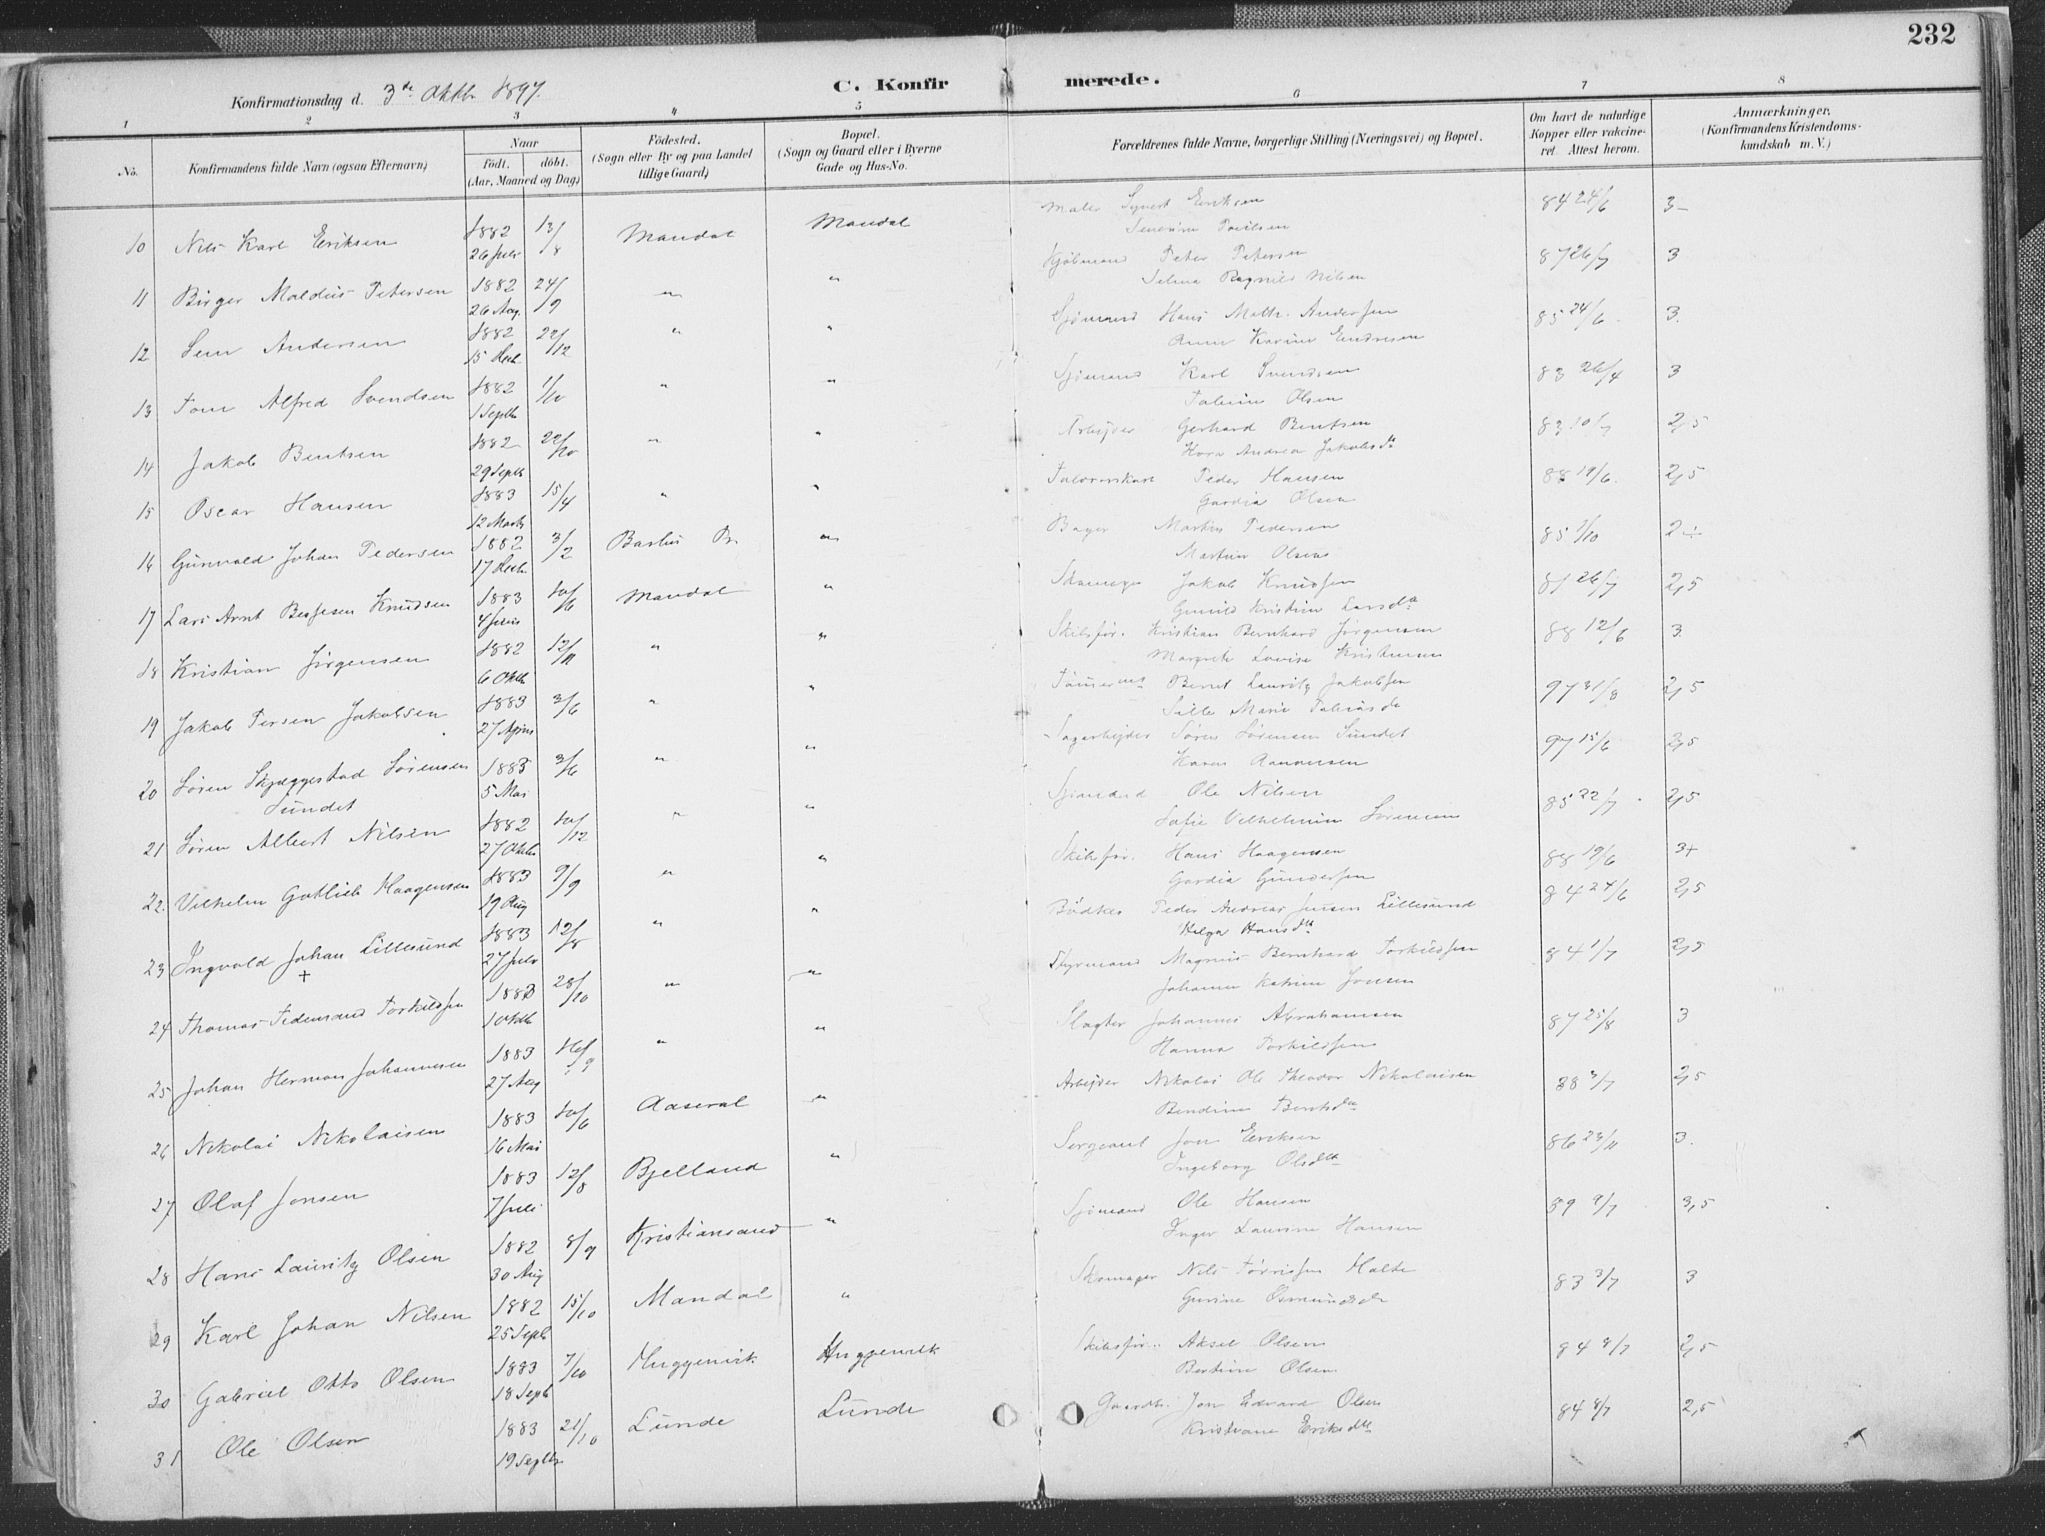 232
Konfirmationsdag d. 3die Oktbr 1897.
C. Konfirmerede.
1 2 3 4 5 6 7 8
No.
Konfirmandens fulde Navn (ogsaa Efternavn)
Naar
födt. döbt.
(Aar, Maaned og Dag)
Födested.
(Sogn eller By og paa Landet tillige Gaard)
Bopæl.
(Sogn og Gaard eller i Byerne Gade og Hus-No.
Forældrenes fulde Navne, borgerlige Stilling (Næringsvei) og Bopæl.
Om havt de naturlige Kopper eller vakcineret. Attest herom.
Anmærkninger.
(Konfirmandens Kristendomskundskab m.V.)
10 Nils Karl Eriksen 1882 26 Juli 13/8 Mandal Mandal Maler Syvert Eriksen 84 24/6 3-
11 Birger Maldus Petersen 1882 26 Aug. 24/9 " " Peter Petersen 87 26/7 3
Selma Ragnild Nilsen
12 Andersen 1882 15 Decb. 22/12 " " Sjømand Hans Math. Andersen 85 24/6 3
Anne Karine Endresen
13 Tom Alfred Svendsen 1882 1 Septb 1/10 " " Sjømand Karl Svendsen 83 26/4 3
Olsen
14 Jakob Bentsen 1882 29 Septb 22/10 " " Arbejder Gerhard Bentsen 83 10/7 2,5
Andrea Jakobsdtr
15 Oscar Hansen 1883 12 Marts 15/4 " " Peder Hansen 88 19/6 2,5
Gardia Olsen
16 Gunvald Johan Pedersen 1882 17 Decb 3/2 " Bager Martin Pedersen 85 1/10 2÷
Martine Olsen
17 Lars Arnt Knudsen 1883 4 Juni 10/6 Mandal " Skomager Jakob Knudsen 81 26/7 2,5
Gunild Kristine Larsdtr
18 Kristian Jörgensen 1882 6 Oktb 12/11 " " Skibsfør. Kristian Bernhard Jørgensen 88 12/6 3
Margrete Lovise Kristensen
19 Jakob Persen Jakobsen 1883 27 April 3/6 " " Bernt Lauritz Jakobsen 97 31/8 2,5
Sille Marie Tobiasdtr
20 Sören Skjæggestad Sörensen 1883 5 Mai 3/6 " " Sagarbejder Sören Sörensen Sundet 97 15/6 2,5
Sundet
Karen Aanensen
21 Sören Albert Nilsen 1882 27 Oktb 10/12 " " Sjømand Ole Nilsen 85 22/7 2,5
Sofie Vilhelmine Sörensen
22 Vilhelm Gotlieb Haagensen 1883 19 Aug 9/9 " " Skibsfør. Hans Haagensen 88 19/6 3+
Gardia Gundersen
23 Ingvald Johan Lillesund 1883 27 Juli 12/8 " " Bödker Peder Andreas Jensen Lillesund 84 24/6 2,5
+
Helga Hansdtr
24 Thomas Torkildsen 1883 1 Oktb 28/10 " " Styrmand Magnus Bernhard Torkildsen 84 1/7 2,5
Johanne Katrine Jonsen
25 Johan Herman Johannesen 1883 27 Aug " " Slagter Johannes Abrahamsen 87 25/8 3
Hanna Torkildsen
26 Nikolai Nikolaisen 1883 16 Mai 10/6 Aaseral " Arbejder Nikolai Ole Theodor Nikolaisen 88 3/7 2,5
Bendine Berntsdtr
27 Olaf Jonsen 1883 7 Juli 12/8 Bjelland " Sergeant Jon Eriksen 86 23/11 3.
Ingeborg Olsdtr
28 Hans Lauritz Olsen 1882 30 Aug 8/9 Kristiansand " Sjømand Ole Hansen 89 9/7 3,5
Inger Laurine Hansen
29 Karl Johan Nilsen 1882 25 Septb 15/10 Mandal " Skomager Nils Tørrissen Holte 83 3/7 3
Gurine Osmundsdtr
30 Gabriel Otto Olsen 1883 18 Septb 7/10 Huggenvik Huggenvik Skibsfør. Aksel Olsen 84 8/7 2,5
Bertine Olsen
31 Ole Olsen 1883 19 Septbr 21/10 Lunde Lunde Gaardbr. Jon Edvard Olsen 84 8/7 2,5
Kristiane Eriksdtr